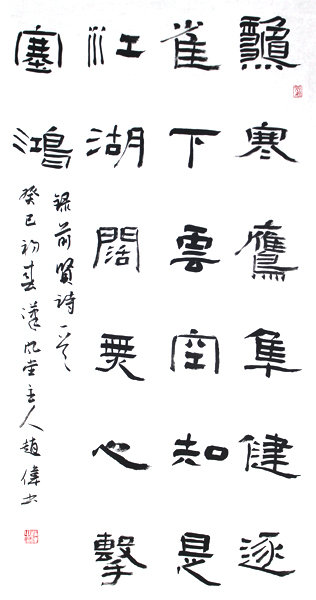 寒鷹隼健逐
雀下雲空知是
江湖闊無心擊
塞鴻
録前賢詩一首
癸巳初春漢風堂主人趙偉書